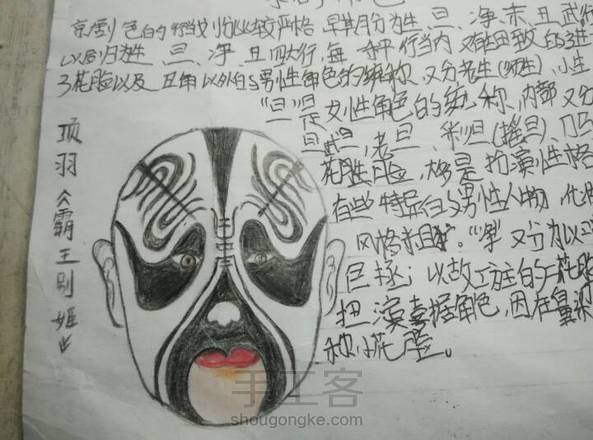 角色
京剧角色的行当划分比较严格,早期分为生、旦、净、末、丑、武行
以后归为生、旦、净、丑四大行,每一种行当内又有细致的进一
了花脸以及丑角以外的男性角色的统称,又分老生(须生)、小生
"旦"是女性角色的统称,内部又分
旦、武旦、老旦、彩旦(摇旦)、刀
花脸,大多是扮演性格
有些特异的男性人物,化
风格粗犷。"净"又分为以
巨拯;以做工为主的二花脸
丑扮演喜剧角色,因在鼻梁
称小花脸。
项羽《霸王别姬》
手工客
shougongke.com